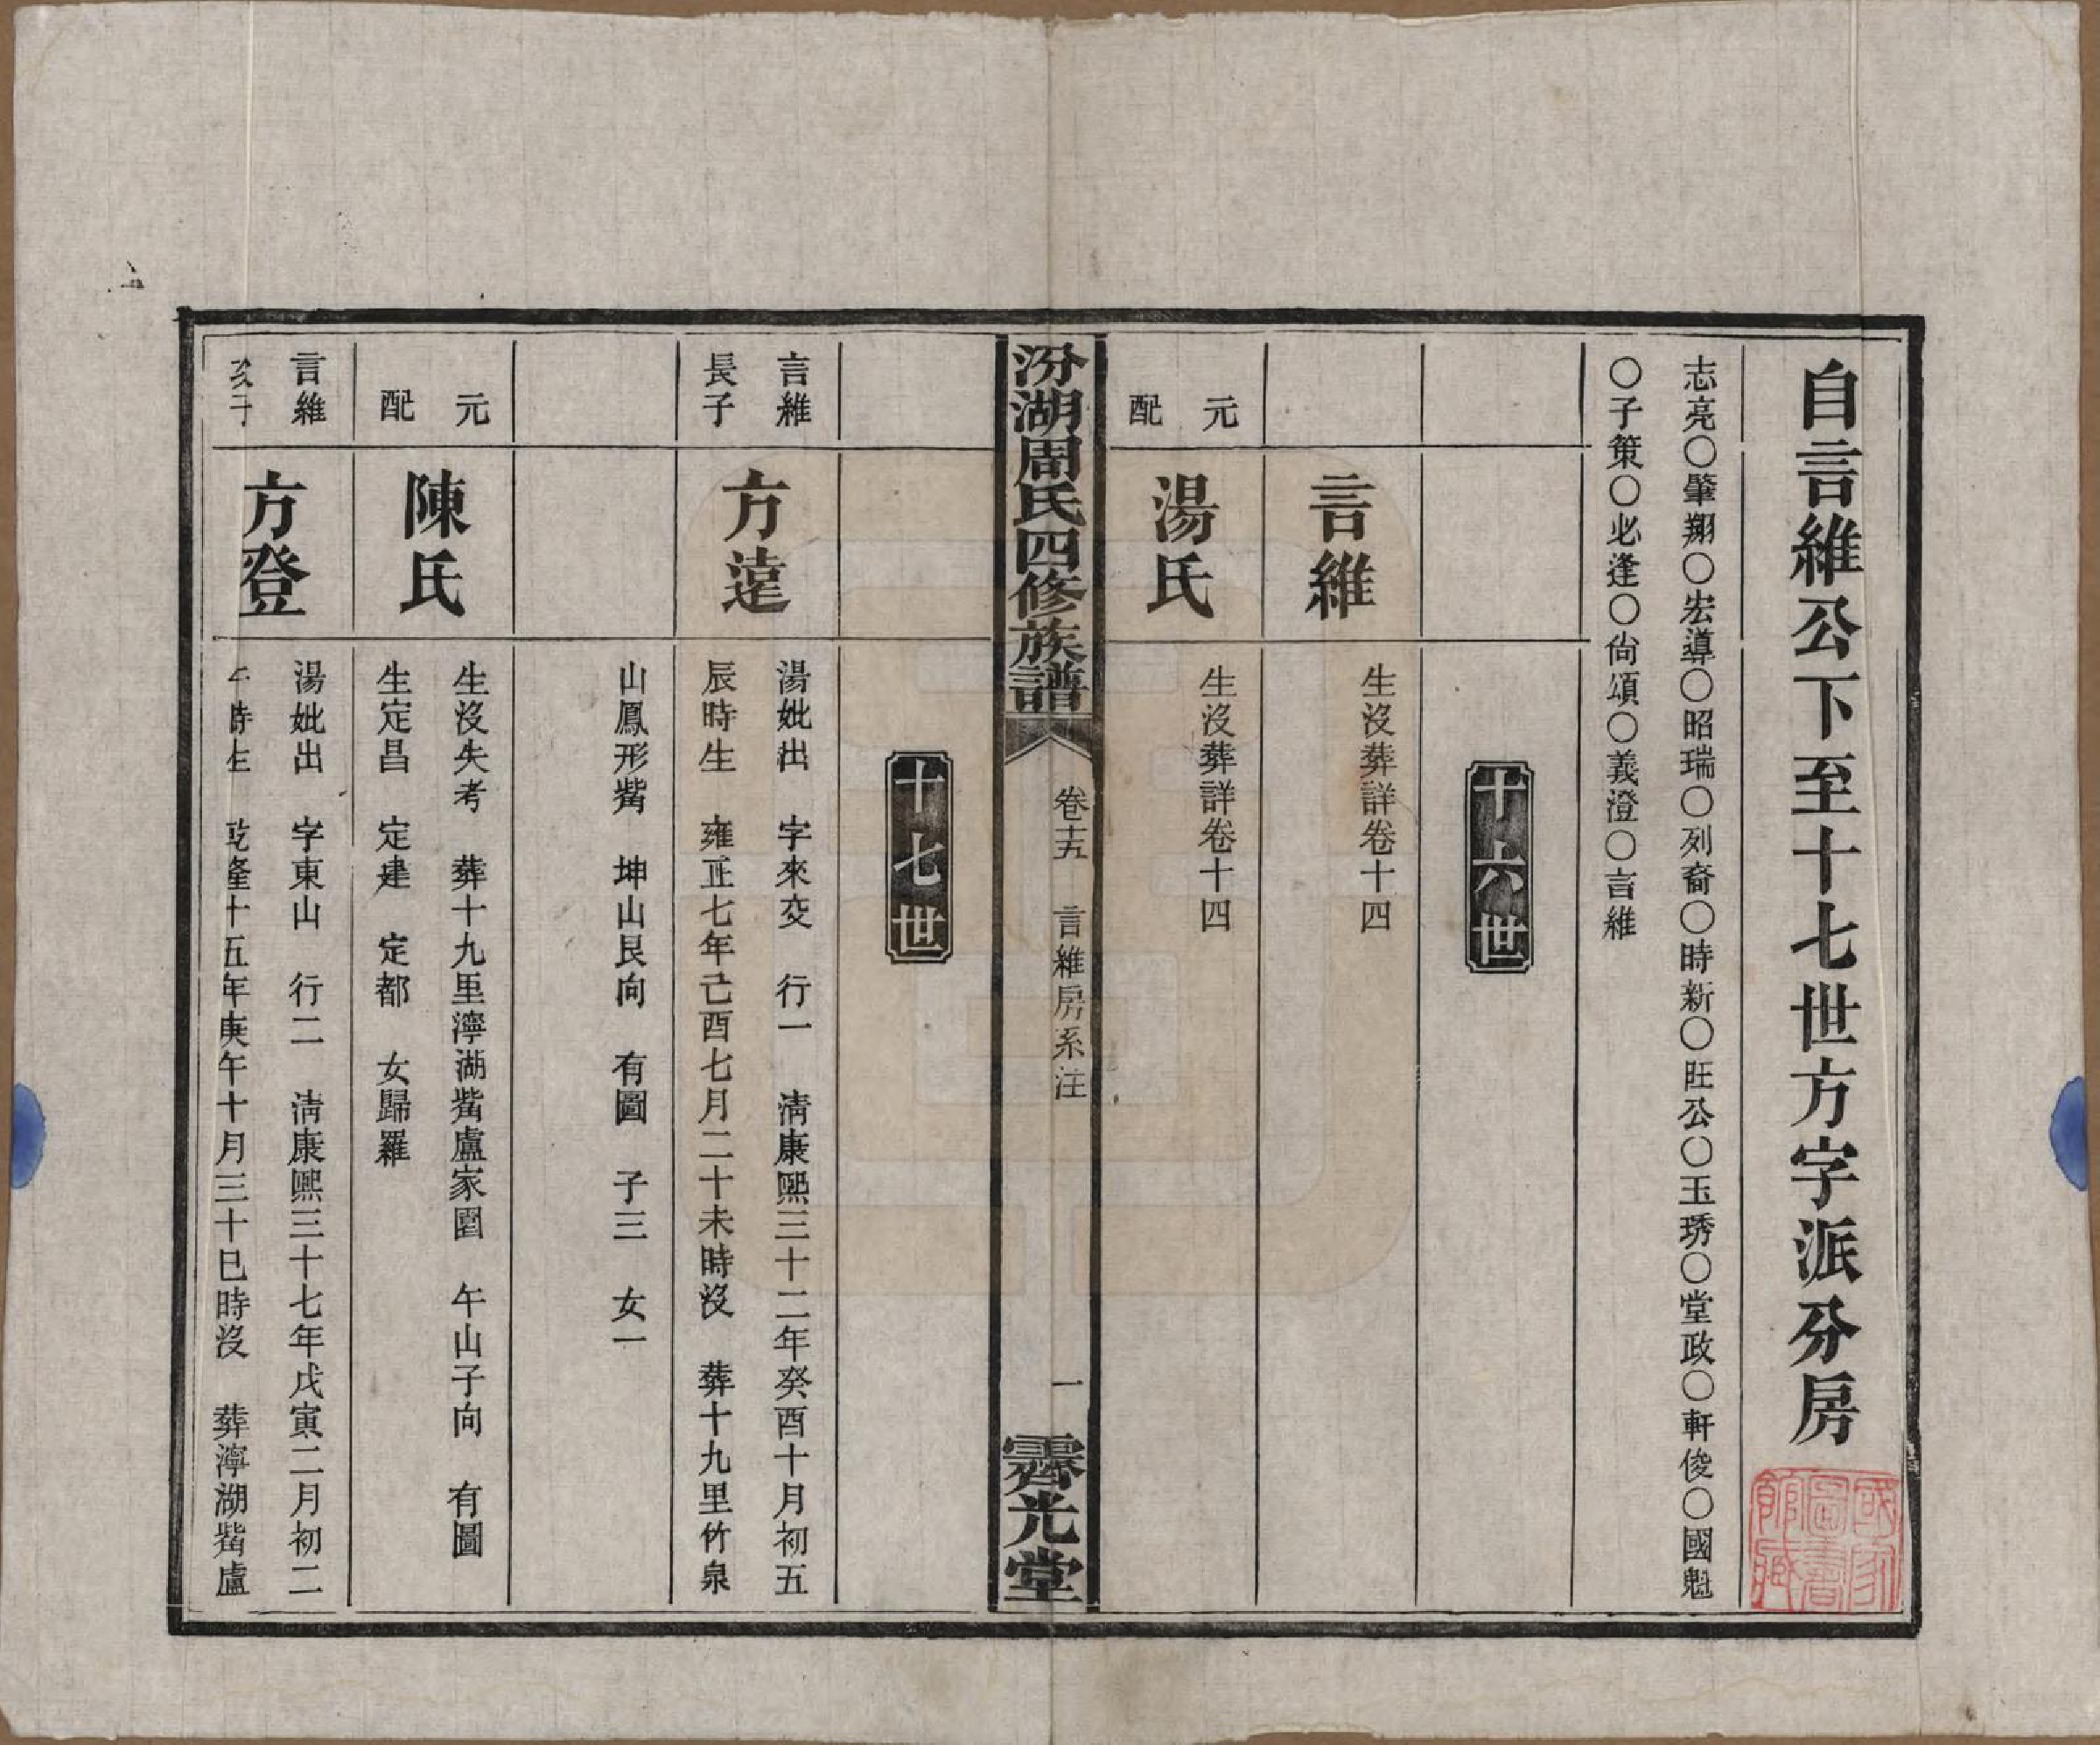 自言維公下至十七世方字派分房
志亮〇肇翔〇宏導〇昭瑞〇列裔〇時新〇旺公〇玉琇〇堂政〇軒俊〇國魁
〇子策〇必逢〇尙頌〇義澄〇言維
國家圖書館藏
十六世
言維
生沒葬詳卷十四
元配
湯氏
生沒葬詳卷十四
汾湖周氏四修族譜
卷十五 言維房系注
一
霽光堂
十七世
言維
長子
方達
湯妣出 字來交 行一 淸康熙三十二年癸酉十月初五
辰時生 雍正七年己酉七月二十未時沒 葬十九里竹泉
山鳳形觜 坤山艮向 有圖 子三 女一
元配
陳氏
生沒失考 葬十九里濘湖觜盧家園 午山子向 有圖
生定昌 定建 定都 女歸羅
言維
次子
方登
湯妣出 字東山 行二 淸康熙三十七年戊寅二月初二
午時生 乾隆十五年庚午十月三十巳時沒 葬濘湖觜盧